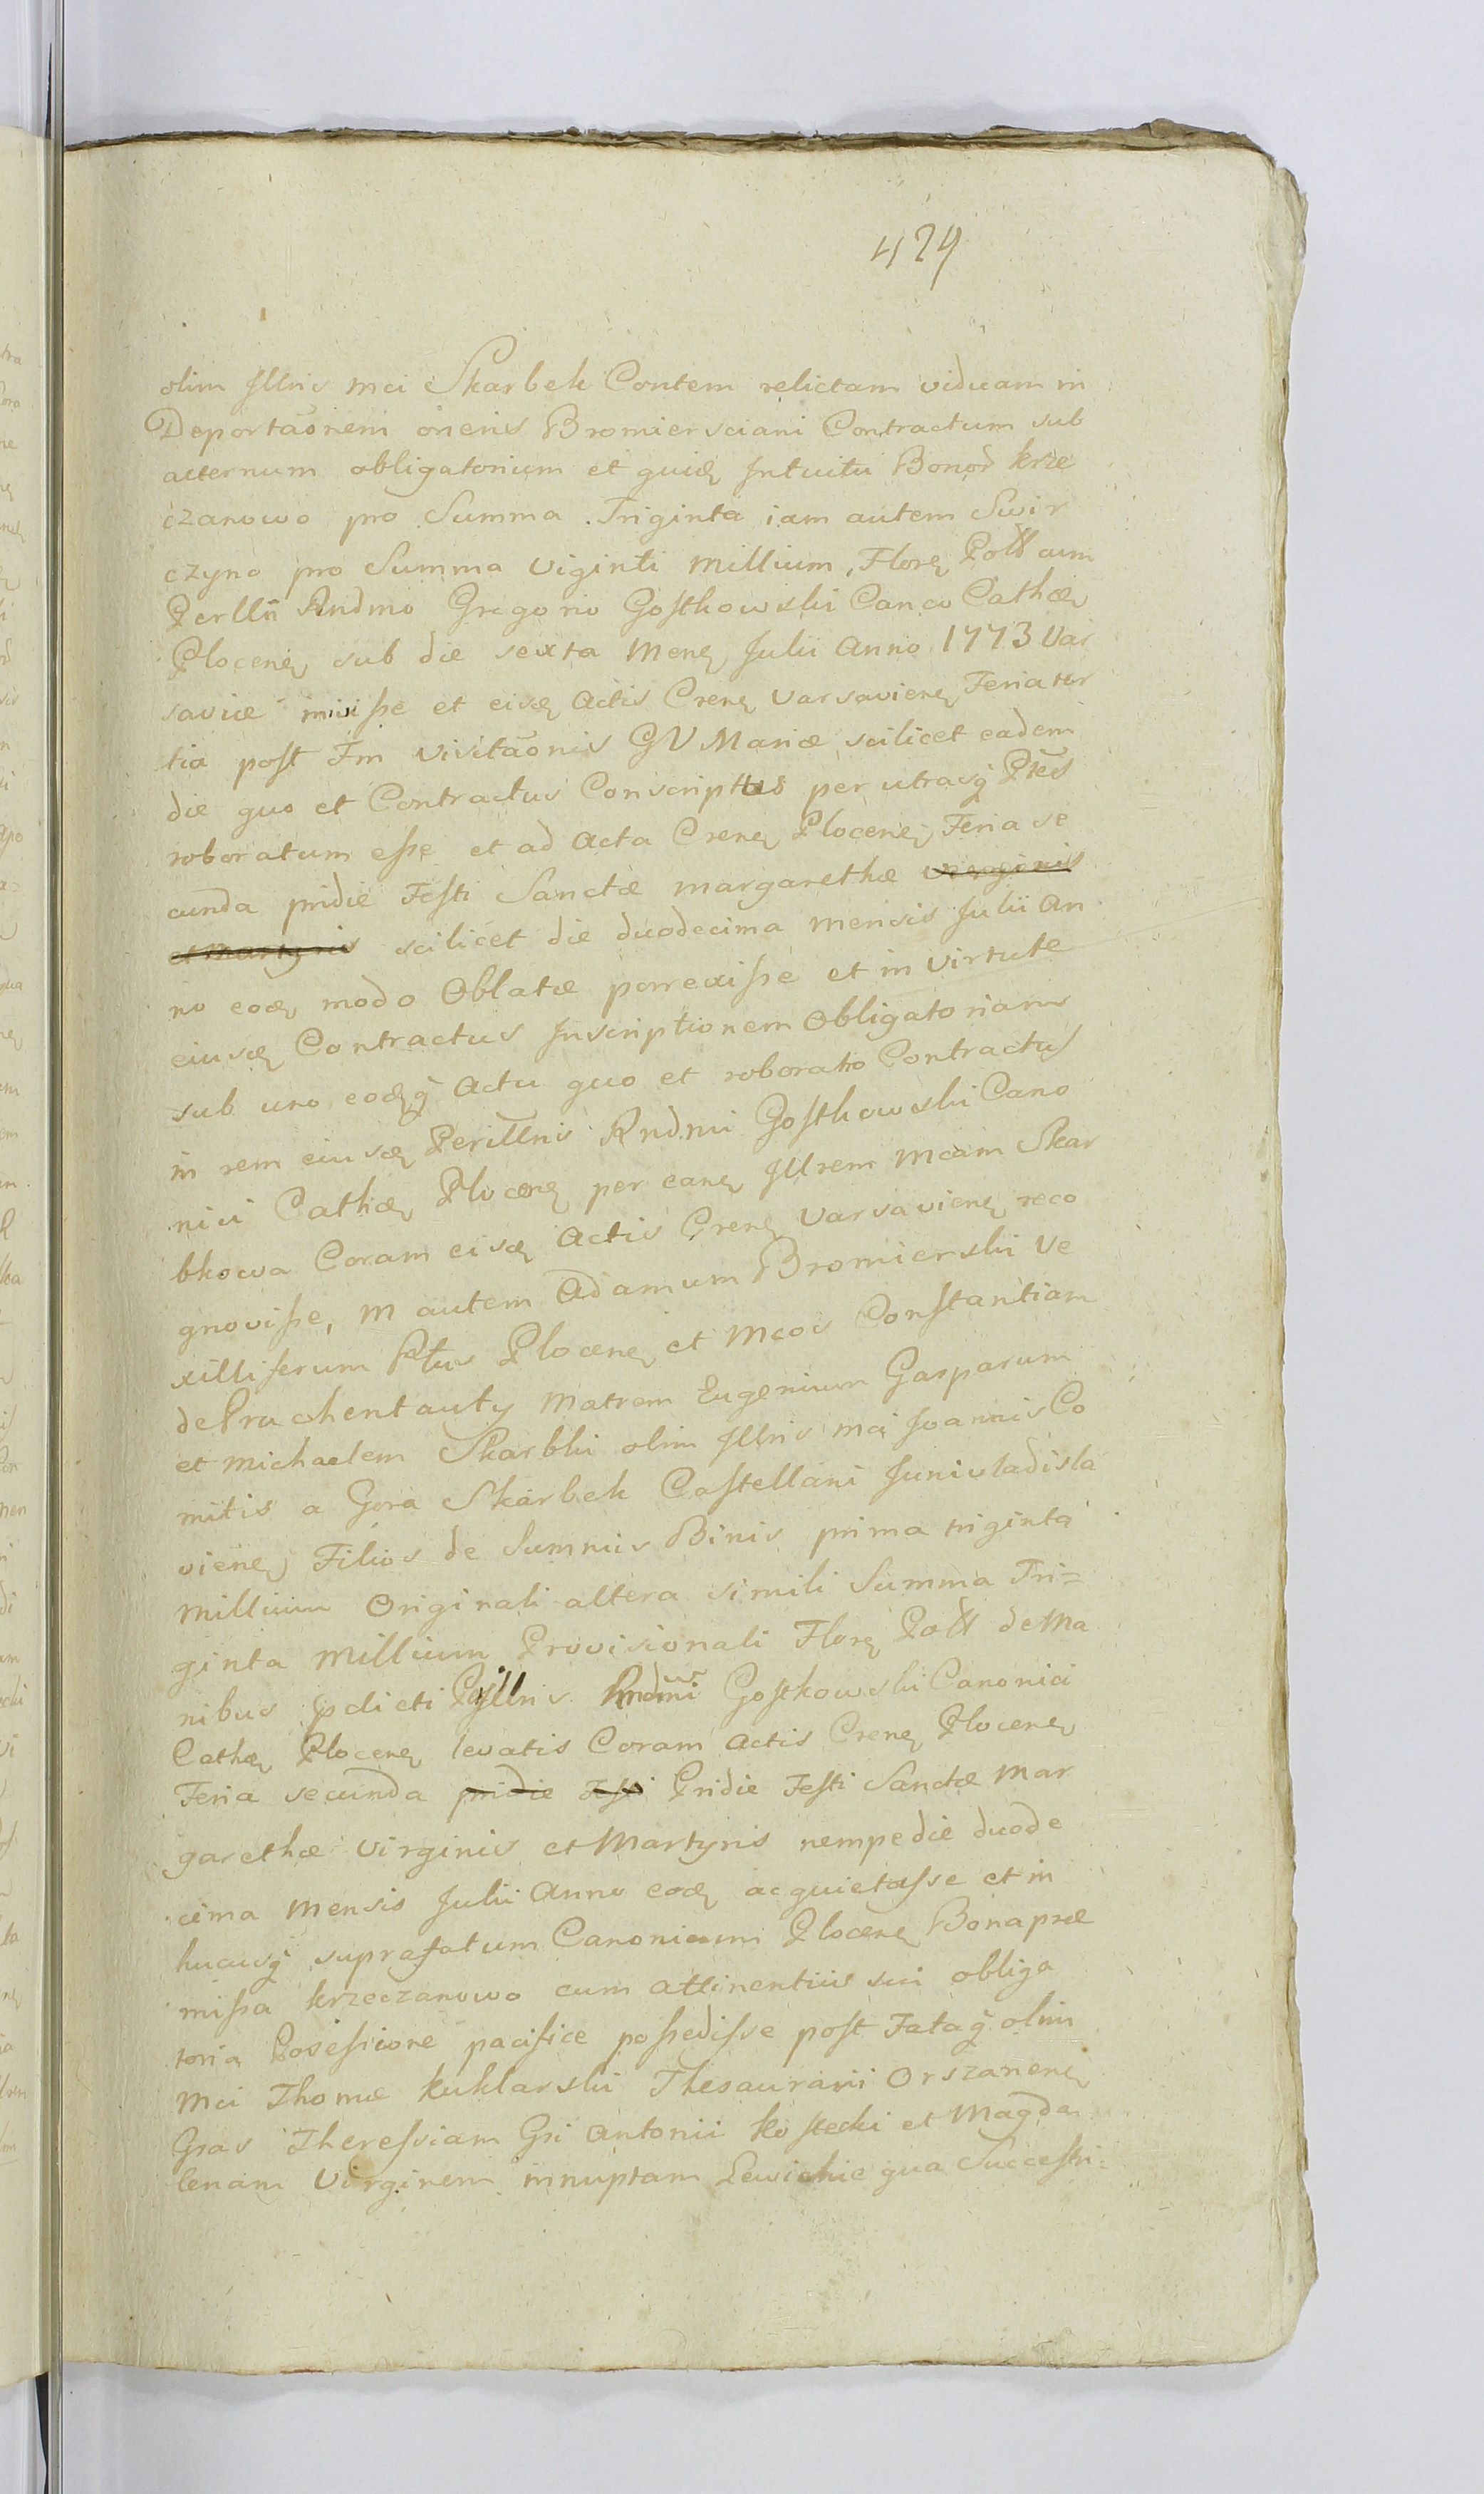 429
olim Jllris mci Skarbek Contem relictam viduam in
Deportãonem oneris Bromiersciani Contractum sub
alternum obligatorium et quidę Jntuitu Bonor krze
czanowo pro Summa Triginta iam autem Swir
czyno pro Summa viginti millium, Florę Poll cum
Perllri Rndmo Gregorio Gostkowski Canco Cathdę
Plocenę sub die sexta Menę Julii Anno 1773 Var
saviæ iniisse et eisdę Actis Crenę Varsavienę Feria ter
tia post Fm Visitãonis BV Mariæ scilicet eadem
die quo et Contractus Conscriptus per utrasq̃ Ptes
roboratum esse et ad Acta Crenę Plocenę Feria se
cunda pridie Festi Sanctæ Margarethæ virginis
et Martyris scilicet die duodecima mensis Julii An
no eodę modo Oblatæ porrexisse et in virtute
eiusdę Contractus Jnscriptionem Obligatoriam
sub uno eodęq̃ Actu quo et roborato Contractus
in rem eiusdę Perillris Rndmi Gostkowski Cano
nici Cathdę Plocenę per eandę Jllrem Mcam Skar
bkowa Coram eisdę Actis Crenę Varsavienę reco
gnovisse, M autem Adamum Bromierski Ve
xilliferum Ptus Plocenę et Mcos Constantiam
de Pruchentauty Matrem Eugenium Gasparum
et Michaelem Skarbki olim Jllris Mci Joannis Co
mitis a Gora Skarbek Castellani Junivladisla
vienę Filios de Summis Binis prima triginta
millium Originali altera simili Summa Tri=
ginta Millium Provisionali Florę Poll de Ma
nibus pdicti Pillris Rndmi Gostkowski Canonici
Cathdę Plocenę levatis Coram Actis Crenę Plocenę
Feria secunda pridie Festi Pridie Festi Sanctæ Mar
garethæ Virginis et Martyris nempe die duode
cima Mensis Julii Anno eodę acquietasse et in
hucusq̃ suprafatum Canonicum Plocenę Bona præ
missa krzeczanowo cum attinentiis sui obliga
toria Possessione pacifice possedisse post Fataq̃ olim
Mci Thomæ Kuklarski Thesaurarii Orszanenę
Gsas Theressiam Gsi Antonii Kostecki et Magda
lenam Virginem innuptam Lewickie qua Successri=